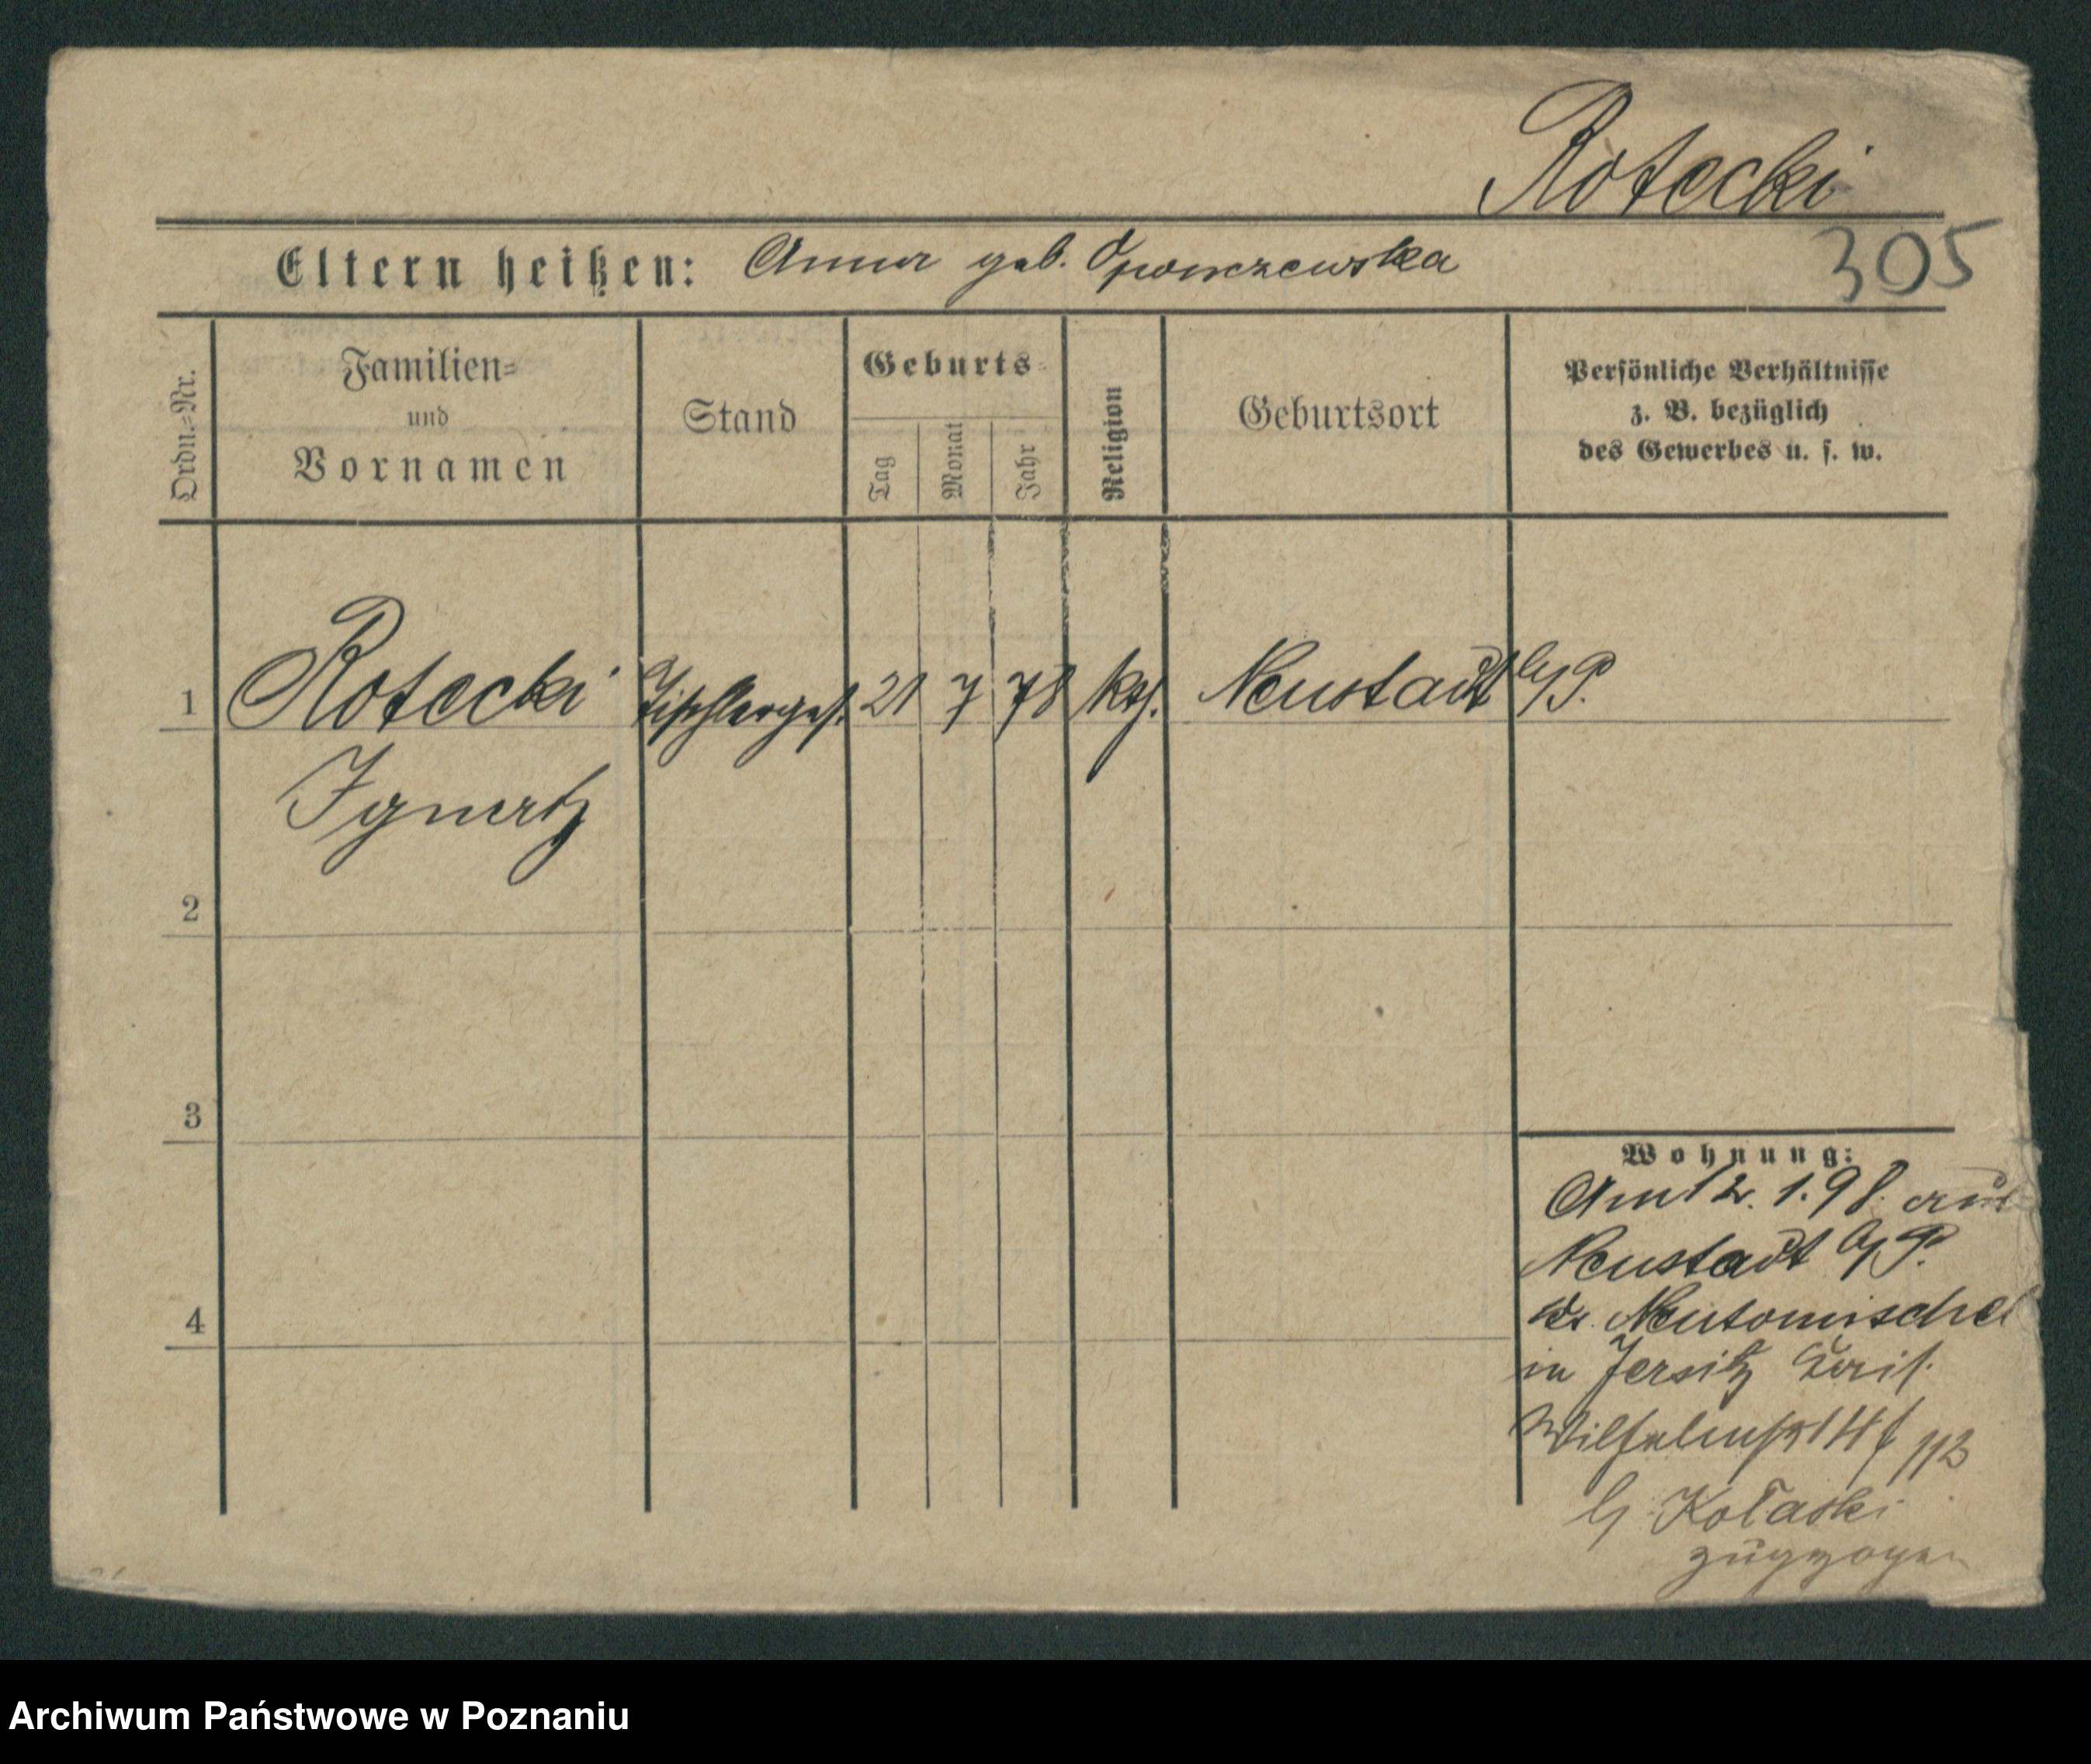 Rotecki
Eltern heißen: Anna geb. Oponczewska
305
Ordn.=Nr.
Familien=
und
Vornamen
Stand
Geburts=
Tag
Monat
Jahr
Religion
Geburtsort
Persönliche Verhältnisse
z. B. bezüglich
des Gewerbes u. s. w.
1 Rotecki Tischlerges. 21 7 78 kth. Neustadt b/P.
Ignatz
2
3
4
Wohnung:
Am 12. 1. 98. aus
Neustadt b/P.
Kr. Neutomischel
in Jersitz
Wilhelmstr 14
b/ Kołaski
zugezogen
Archiwum Państwowe w Poznaniu